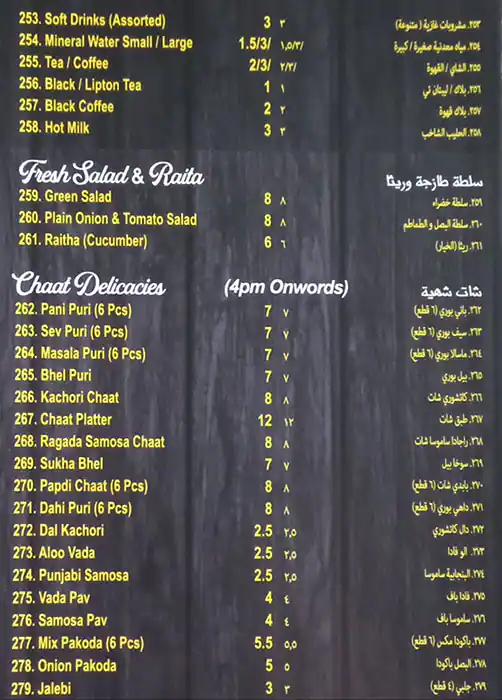 253. Soft Drinks (Assorted) 3 ٣ ٢٥٣. مشروبات غازية (متنوعة)
254. Mineral Water Small / Large 1.5/3/ ١,٥/٣/ ٢٥٤. مياه معدنية صغيرة / كبيرة
255. Tea / Coffee 2/3/ ٢/٣/ ٢٥٥. الشاي / القهوة
256. Black / Lipton Tea 1 ١ ٢٥٦. بلاك / ليبتان تي
257. Black Coffee 2 ٢ ٢٥٧. بلاك قهوة
258. Hot Milk 3 ٣ ٢٥٨. الحليب الشاخب
Fresh Salad & Raita سلطة طازجة وريثا
259. Green Salad 8 ٨ ٢٥٩. سلطة خضراء
260. Plain Onion & Tomato Salad 8 ٨ ٢٦٠. سلطة البصل و الطماطم
261. Raitha (Cucumber) 6 ٦ ٢٦١. ريثا (الخيار)
Chaat Delicacies (4pm Onwords) شات شهية
262. Pani Puri (6 Pcs) 7 ٧ ٢٦٢. باني بوري (٦ قطع)
263. Sev Puri (6 Pcs) 7 ٧ ٢٦٣. سيف بوري (٦ قطع)
264. Masala Puri (6 Pcs) 7 ٧ ٢٦٤. ماسالا بوري (٦ قطع)
265. Bhel Puri 7 ٧ ٢٦٥. بيل بوري
266. Kachori Chaat 8 ٨ ٢٦٦. كاتشوري شات
267. Chaat Platter 12 ١٢ ٢٦٧. طبق شات
268. Ragada Samosa Chaat 8 ٨ ٢٦٨. راجادا ساموسا شات
269. Sukha Bhel 7 ٧ ٢٦٩. سوخا بيل
270. Papdi Chaat (6 Pcs) 8 ٨ ٢٧٠. بابدي شات (٦ قطع)
271. Dahi Puri (6 Pcs) 8 ٨ ٢٧١. داهي بوري (٦ قطع)
272. Dal Kachori 2.5 ٢,٥ ٢٧٢. دال كاتشوري
273. Aloo Vada 2.5 ٢,٥ ٢٧٣. الو فادا
274. Punjabi Samosa 2.5 ٢,٥ ٢٧٤. البنجابية ساموسا
275. Vada Pav 4 ٤ ٢٧٥. فادا باف
276. Samosa Pav 4 ٤ ٢٧٦. ساموسا باف
277. Mix Pakoda (6 Pcs) 5.5 ٥,٥ ٢٧٧. باكودا مكس (٦ قطع)
278. Onion Pakoda 5 ٥ ٢٧٨. البصل باكودا
279. Jalebi 3 ٣ ٢٧٩. جلبي (٤ قطع)